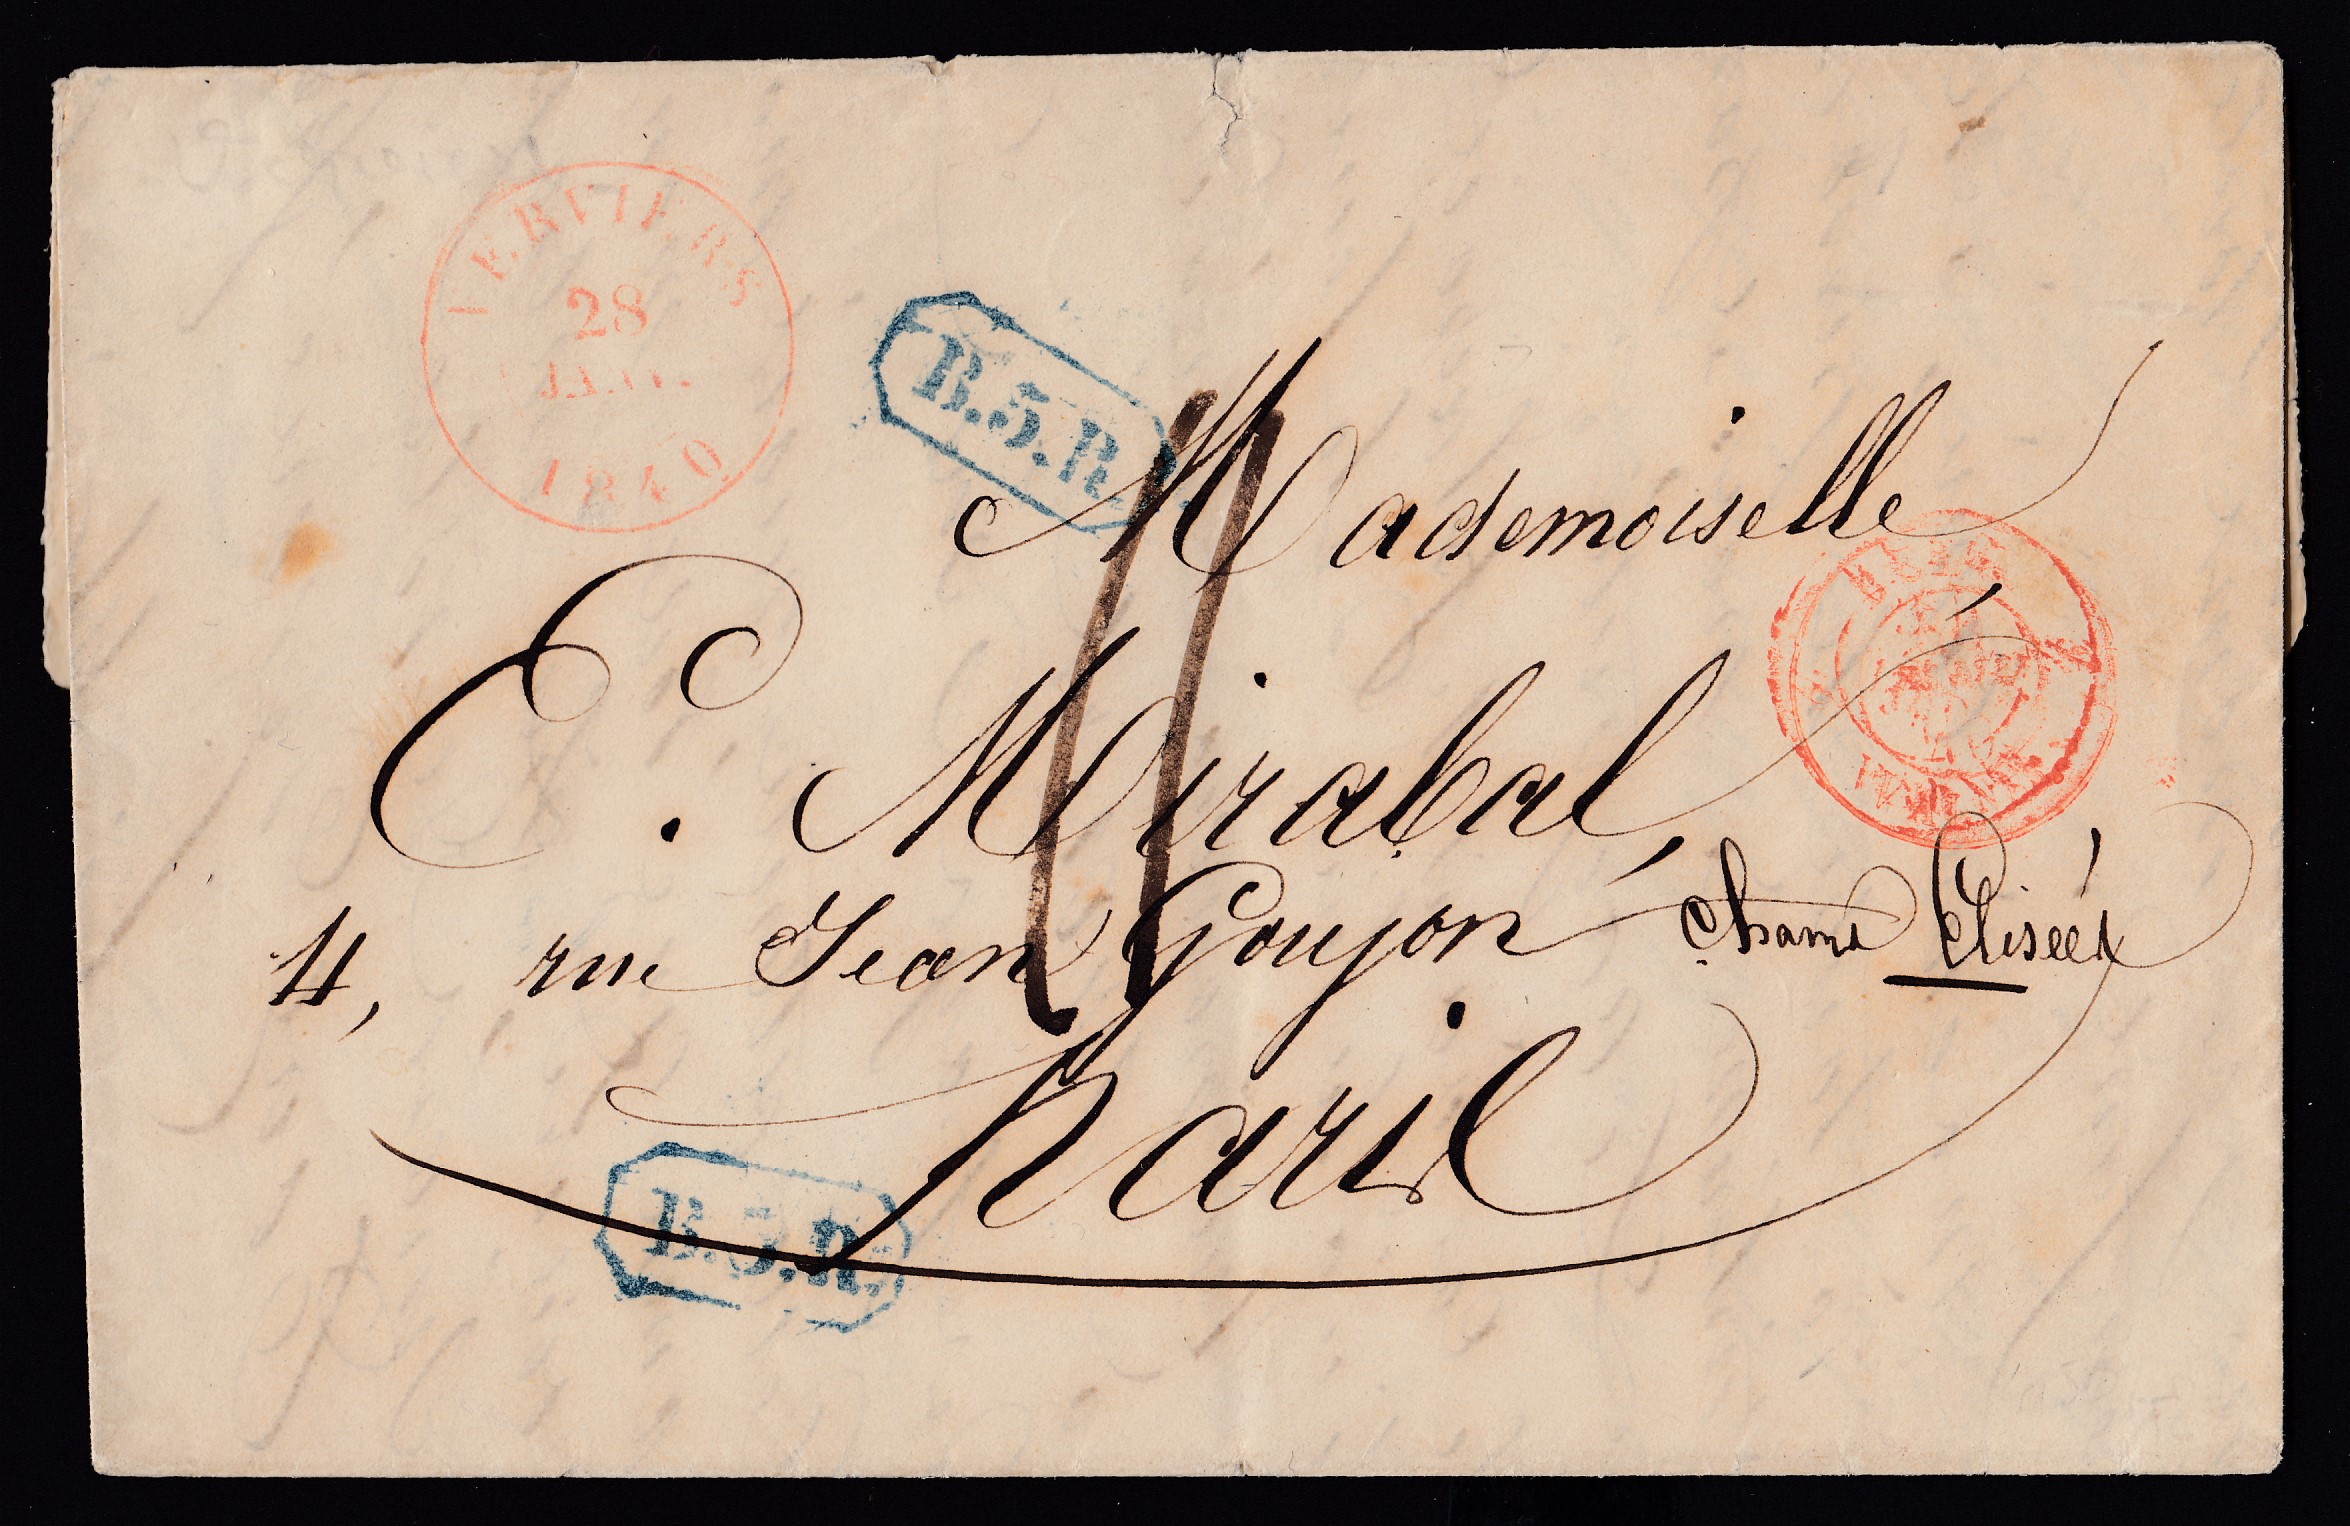 VERVIERS
28
JANV.
1840
B.5.R.
Mademoiselle
E. Mirabal,
4, rue Jean Goujon Champs Elisées
Paris
B.5.R.
BELG.